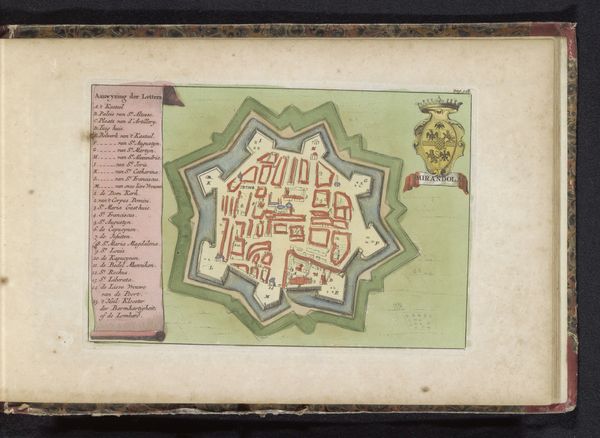 Aanwyzing der Letters
A 't Kasteel
B. Paleis van St.
C. Plaats van d' Artillery.
D. Tuig huis
E. Bolwerk van 't Kasteel.
F. van St. Augustyn
G. van St. Martyn
H. van St.
I. van St. Joris
K. van St. Catharina
L. van St. Franciscus
M. van onse lieve Vrouwe
1. de Dom Kerk
2. van 't Corpus Domini.
3. St. Maria Gasthuis.
4. St. Franciscus.
5. St. Augustyn.
6. de Capucynen
7. de Jesuiten
8. St. Maria Magdalena
9. St. Louis
10. de Kapucynen
11. de Bedel Munniken.
12. St. Rochus
13. St. Liberata.
14. de Lieve Vrouwe
van de Poort.
15. 't Non Klooster
der Barmhartigheit
of de Lombard.
MIRANDOLA